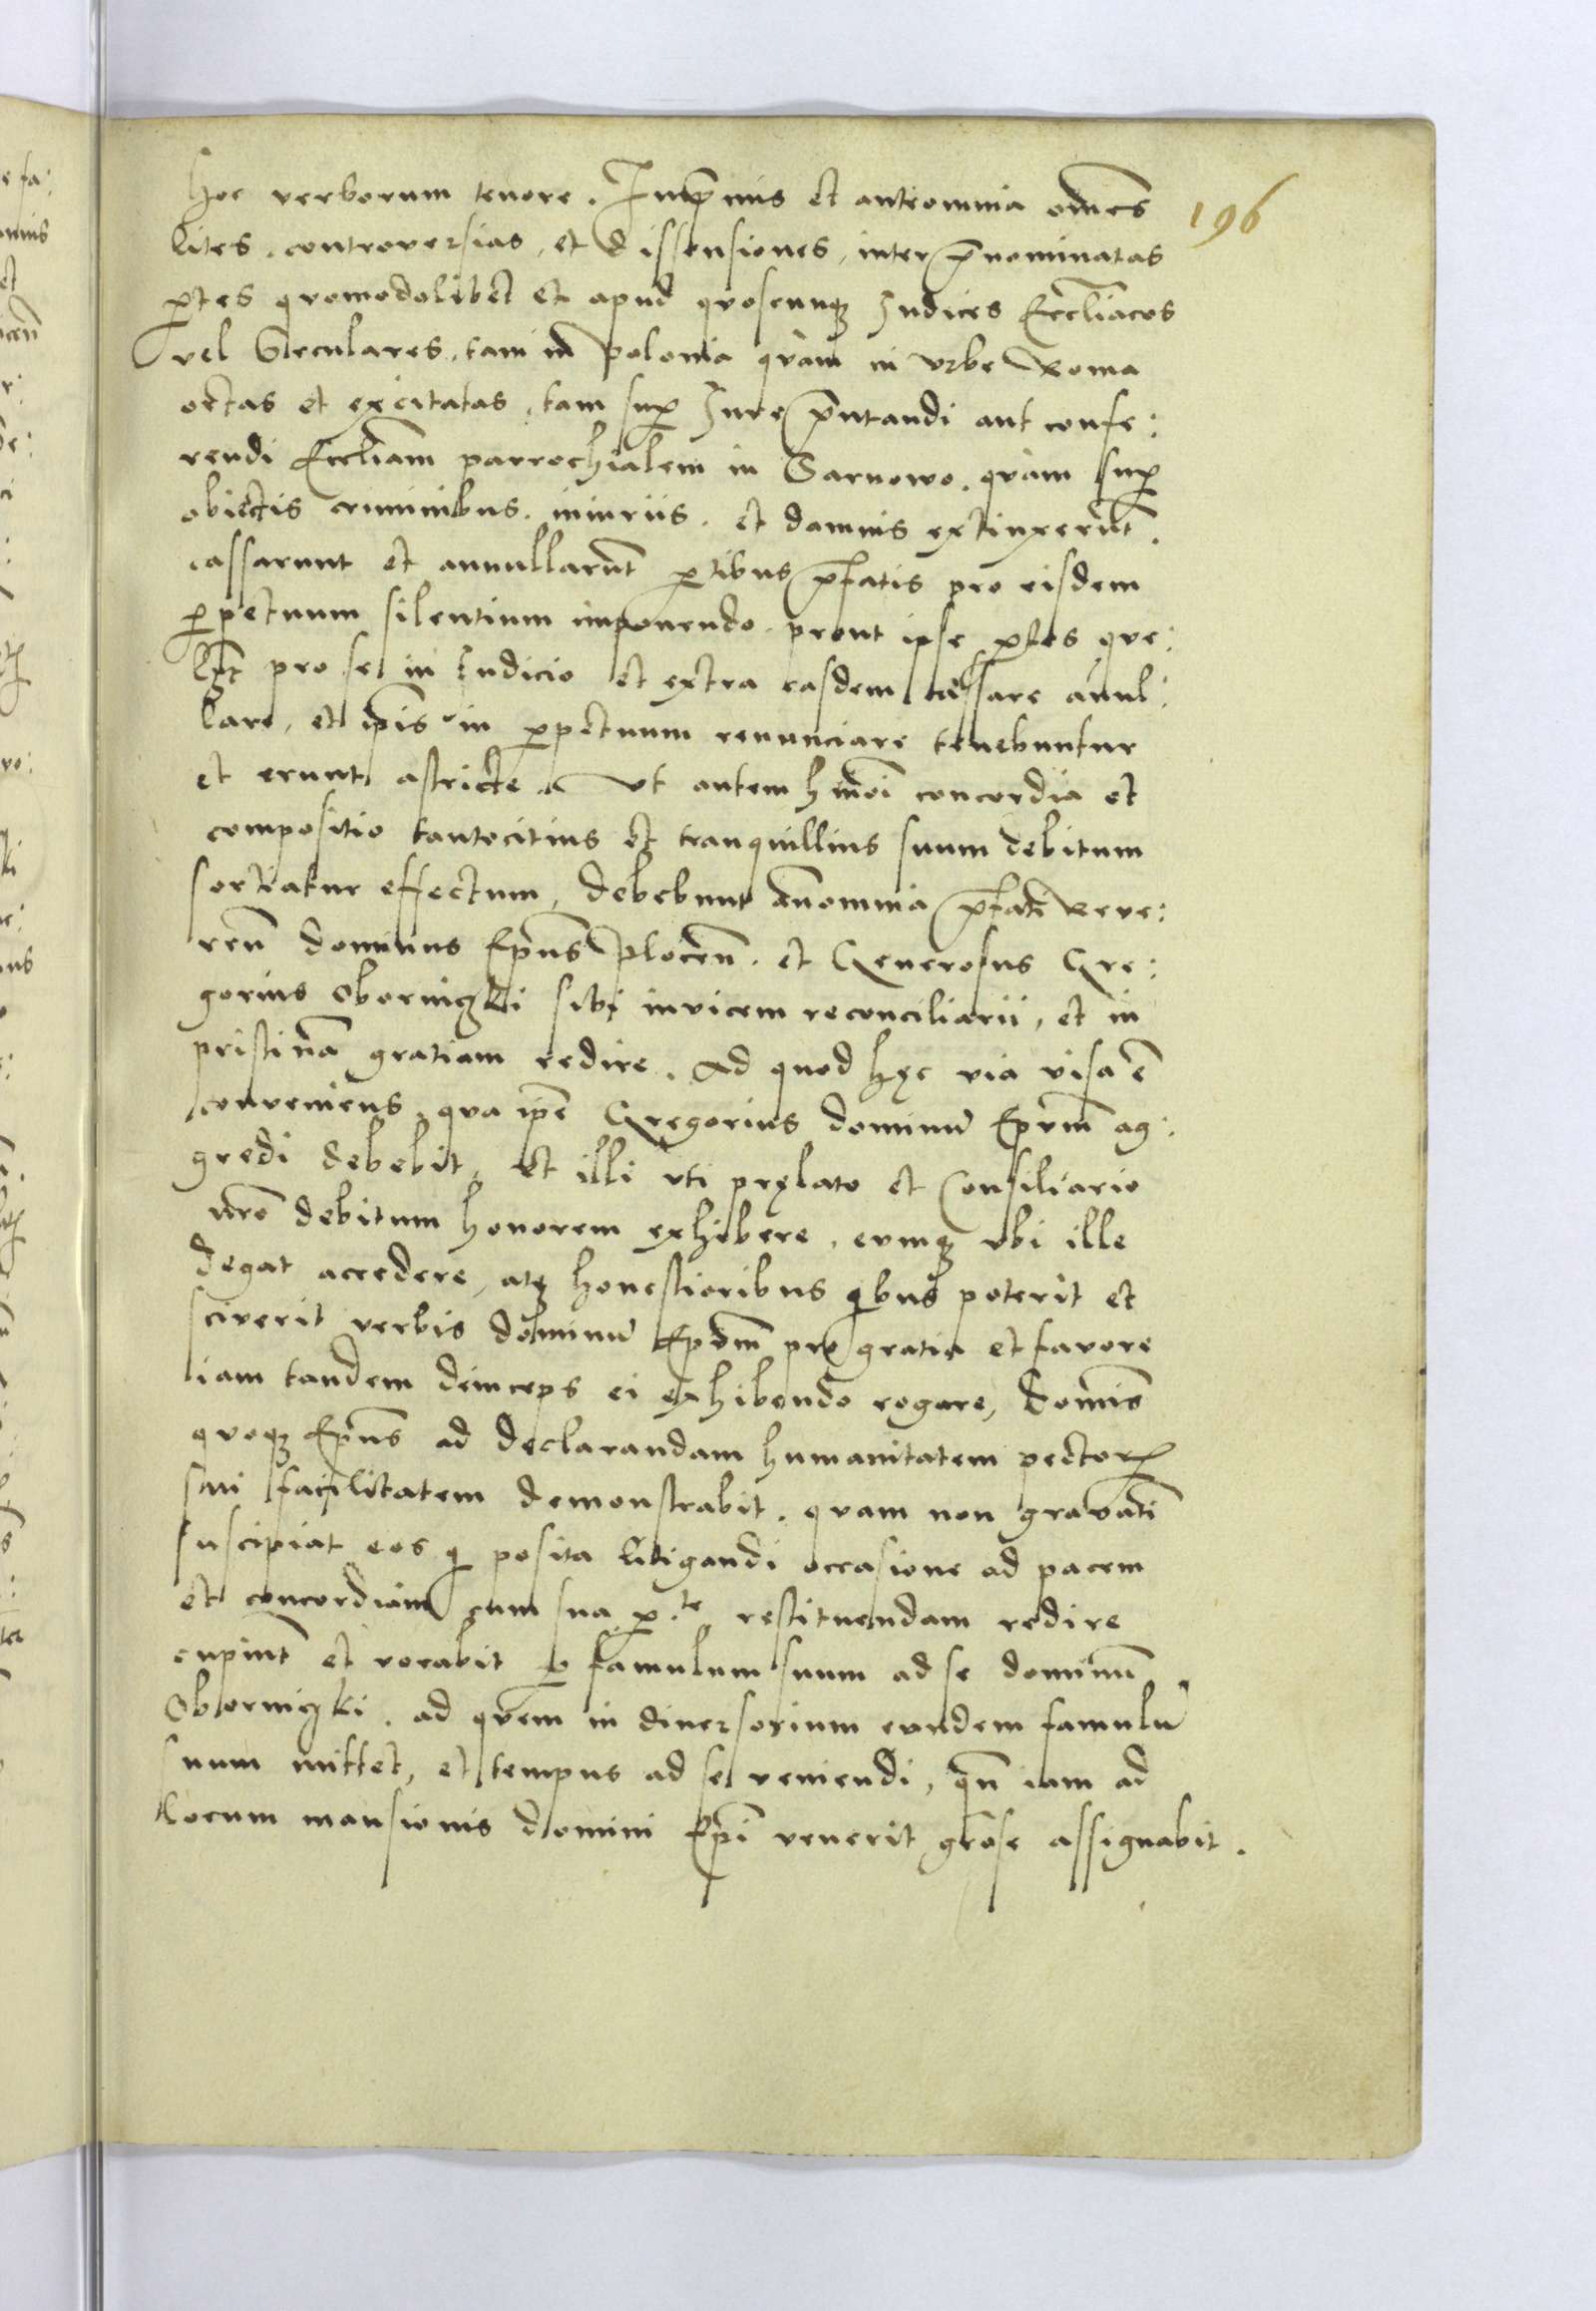 196
hoc verborum tenore. Inprimis et anteomnia om̄es
lites, controversias, et dissensiones, inter p̄nominatas
p̱tes quomodolibet et apud quoscunqꝫ Iudices Eccl̄iacos
vel Seculares, tam in Polonia quam in vrbe Roma
ortas et excitatas, tam sup̱ Iure p̄ntandi aut confe:
rendi Eccl̄iam parrochialem in Sarnowo, quam sup̱
obiectis criminibus, iniuriis, et damnis extinxerūt.
cassarunt et annullarūt p̱tibus p̄fatis pro eisdem
p̱petuum silentium imponendo, prout ipse p̱tes que:
lꝫt pro se in Iudicio et extra easdem cassare anul:
lare, et ip̄is in p̱petuum renunciare tenebuntur
et erunt astricte. Vt autem hmōi concordia et
compositio tantocitius et tranquillius suum debitum
sortiatur effectum, debebunt an̄omnia p̄fati Reve:
ren̄ dominus Ep̄us Plocen̄. et Generosus Gre:
gorius Oborniczki sibi invicem reconciliarii, et in
pristinā gratiam redire. Ad quod hęc via visa ē
conveniens, qua ip̄e Gregorius dominū Ep̄um ag:
gredi debebit, et illi vti pręlato et Consiliario
nr̄o debitum honorem exhibere, eumqꝫ vbi ille
degat accedere, atqꝫ honestioribus qibus poterit et
sciverit verbis dominū Ep̄um pro gratia et favore
iam tandem deinceps ei exhibendo rogare, Domin̄s
quoqꝫ Ep̄us ad declarandam humanitatem pectorꝭ
sui facilitatem demonstrabit, quam non gravatī
suscipiat eos q posita litigandi occasione ad pacem
et concordiam cum sua p̱te restituendam redire
cupiūt et vocabit p̱ famulum suum ad se dominū
Oborniczki, ad quem in diversorium eundem famulū
suum mittet, et tempus ad se veniendi, qn̄ iam ad
locum mansionis domini Ep̄i venerit gr̄ose assignabit.